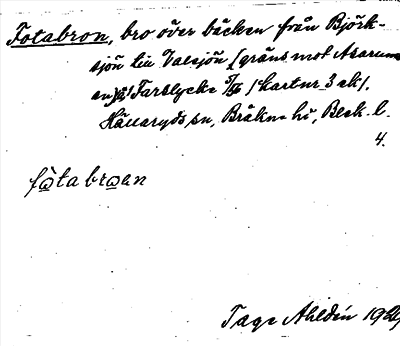 Fotabron, bro över bäcken från Björk-
sjön till Valsjön (gräns mot Asarums
sn) på Farslycke 3/16 (kartnr 3 ek).
Hällaryds sn, Bräkne hd, Blek. l.
4.
fo̲ta bro̲en
Tage Ahldén 19